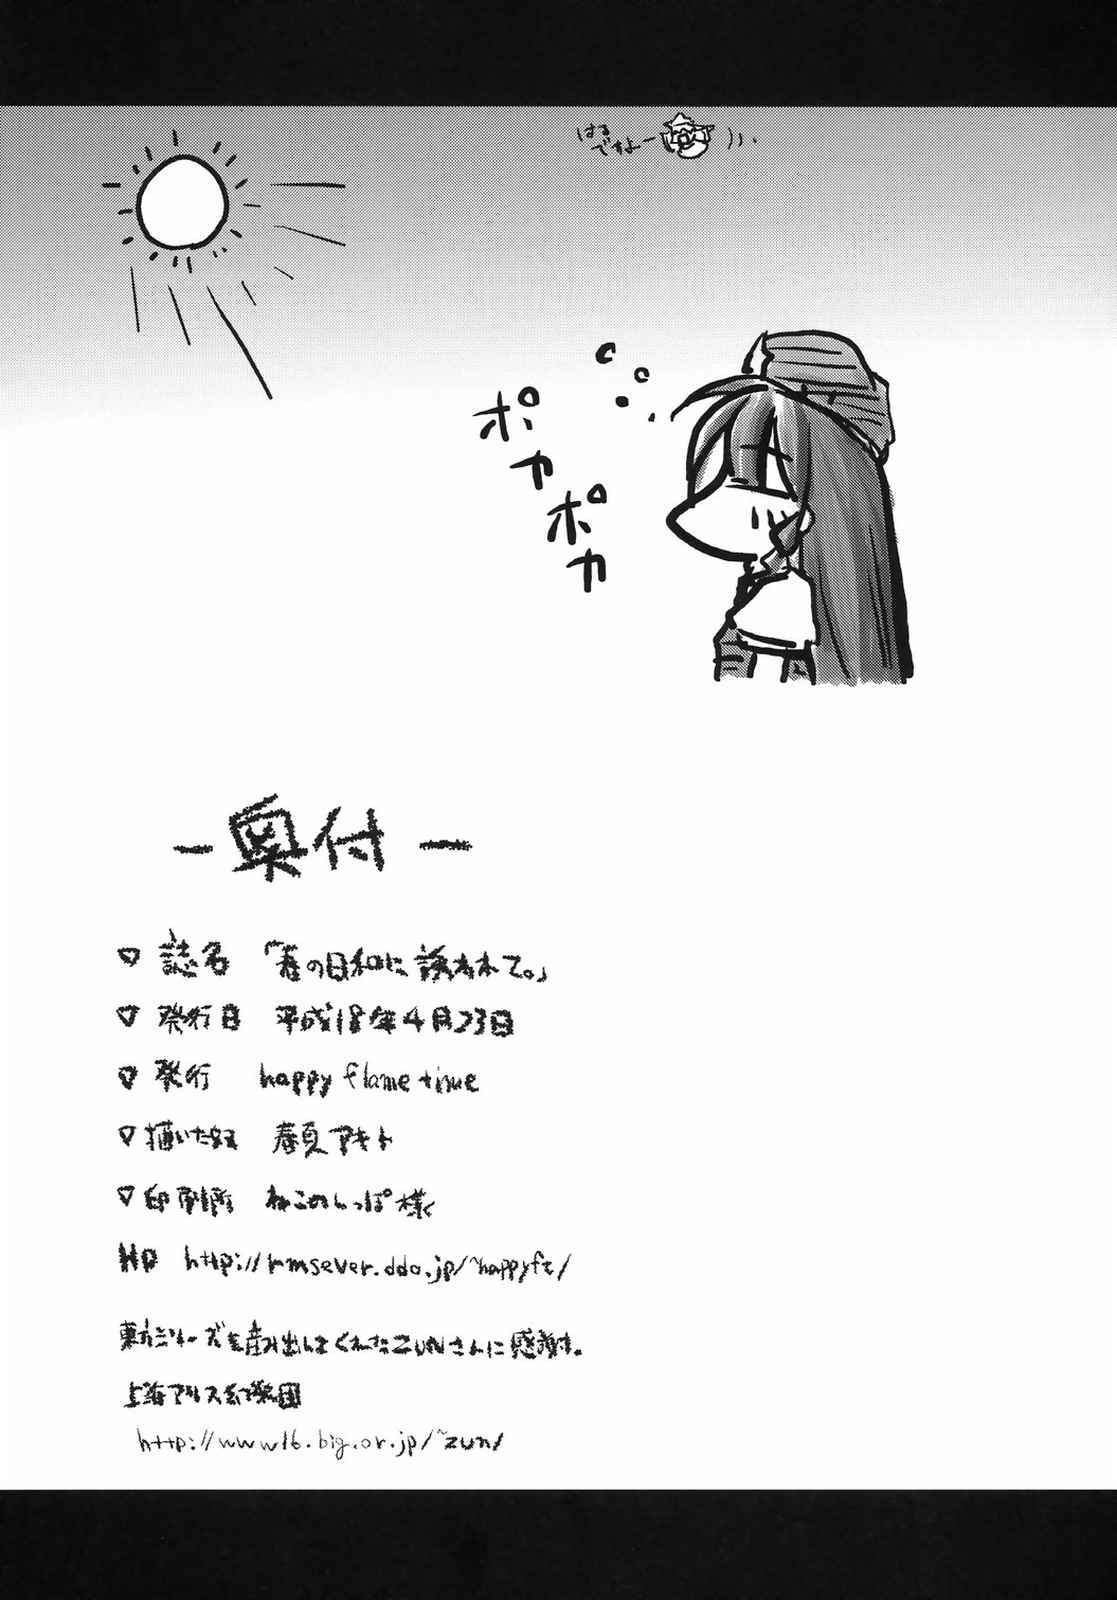 はる
ですよー
ポカ
ポカ
ー奥付ー
誌名 「春の日和に誘われて。」
発行日 平成18年4月23日
発行 happy flame time
描いた奴 春夏アキト
印刷所 ねこのしっぽ様
HP http://rmsever.ddo.jp/~happyft/
東方シリーズを産み出してくれたZUNさんに感謝。
上海アリス幻樂団
http://www16.big.or.jp/~zun/